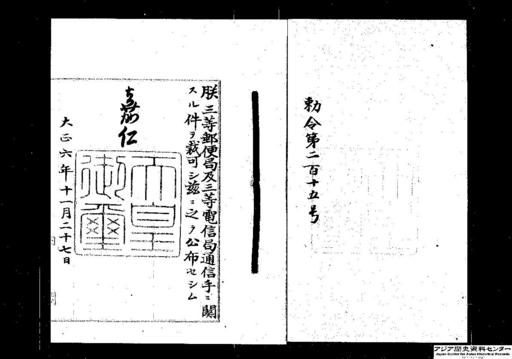 勅令第二百十五号
朕三等郵便局及三等電信局通信手ニ関
スル件ヲ裁可シ茲ニ之ヲ公布セシム
嘉仁
天皇
御璽
大正六年十一月二十七日
アジア歴史資料センター
Japan Center for Asian Historical Records